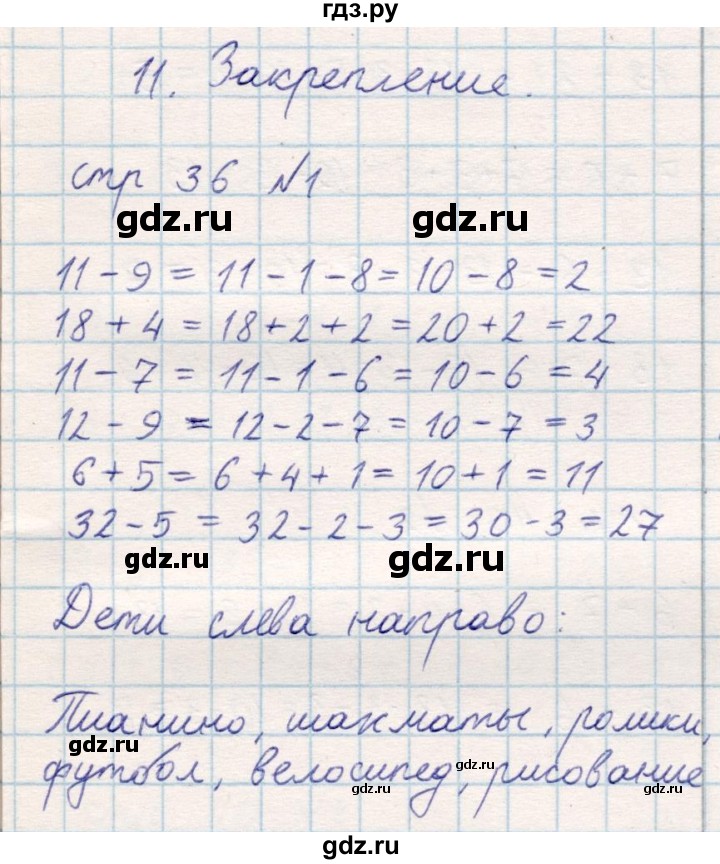 гдз.ру
11. Закрепление.
стр 36 №1
gdz.ru gdz.ru
11 - 9 = 11 - 1 - 8 = 10 - 8 = 2
18 + 4 = 18 + 2 + 2 = 20 + 2 = 22
11 - 7 = 11 - 1 - 6 = 10 - 6 = 4
12 - 9 = 12 - 2 - 7 = 10 - 7 = 3
6 + 5 = 6 + 4 + 1 = 10 + 1 = 11
32 - 5 = 32 - 2 - 3 = 30 - 3 = 27
gdz.ru gdz.ru
Дети слева направо:
Пианино, шахматы, ролики,
gdz.ru gdz.ru
футбол, велосипед, рисование
gdz.ru
gdz.ru